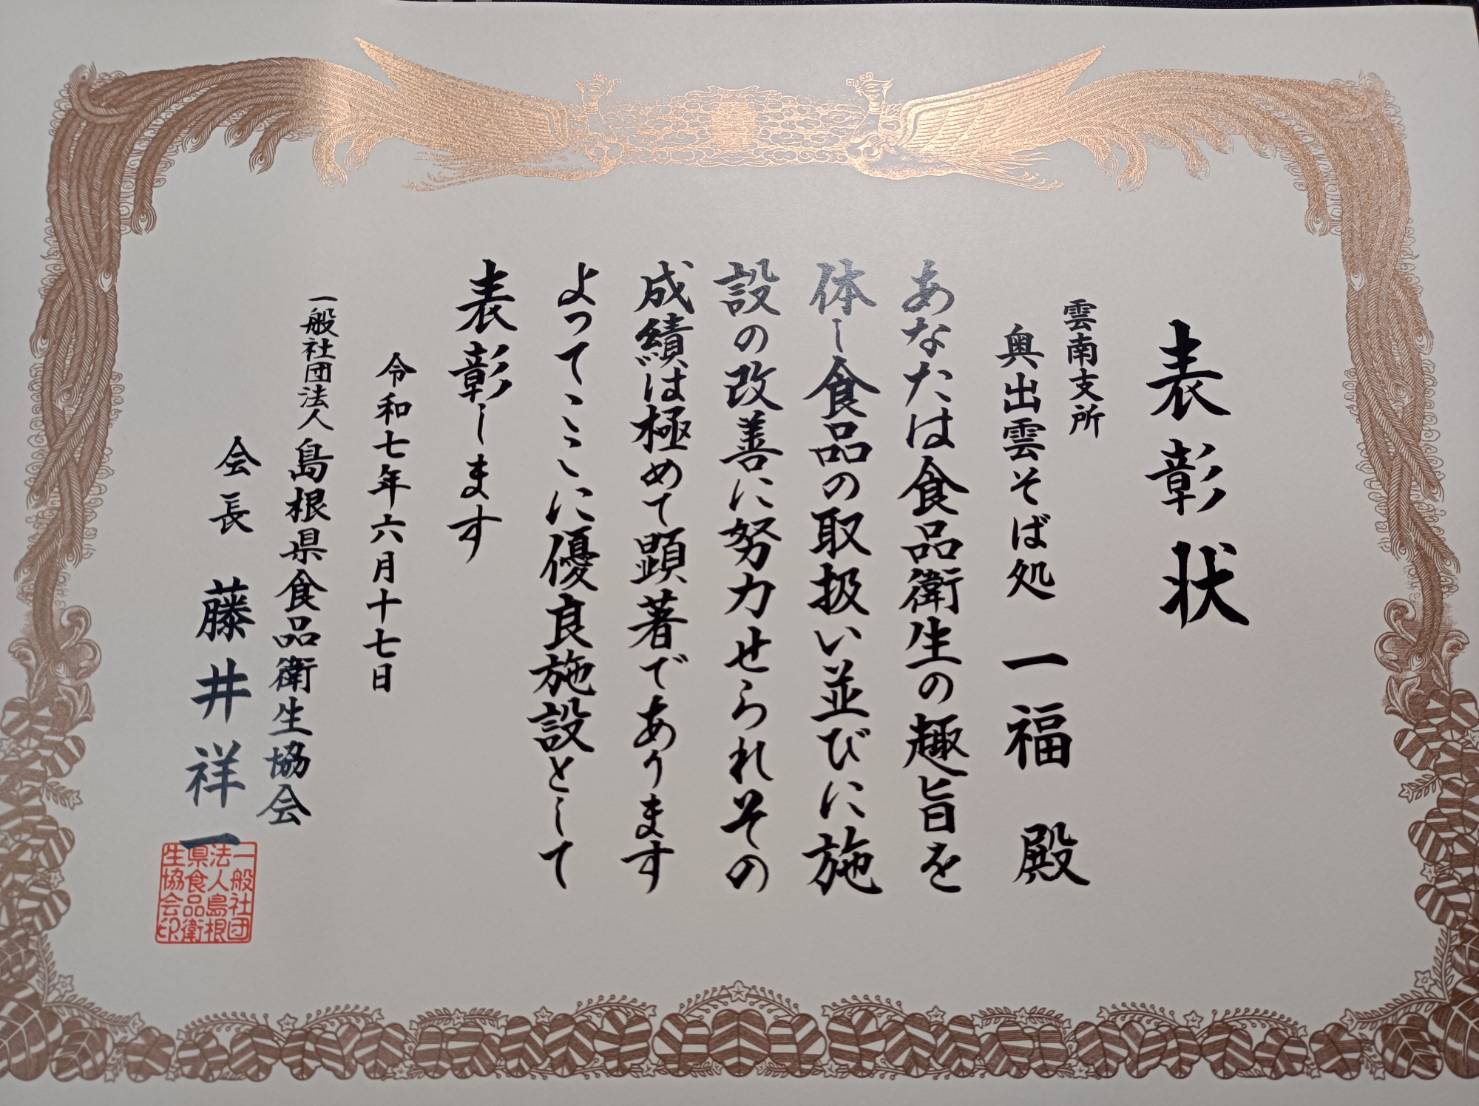 表彰状
雲南支所
奥出雲そば処 一福 殿
あなたは食品衛生の趣旨を
体し食品の取扱い並びに施
設の改善に努力せられその
成績は極めて顕著であります
よってここに優良施設として
表彰します
令和七年六月十七日
一般社団法人島根県食品衛生協会
会長 藤井祥一
一般社団
法人島根
県食品衛
生協会印